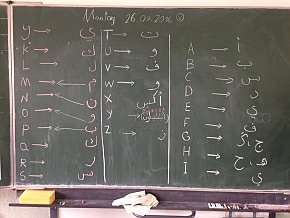 Montag 26.09.2016
Y → ي
K → ك
L → ل
M ← م
N ← و
O ← ن
P ← و
Q → ك
R → ر
S → س
T → ت
U → و
V → ف
W → و
X → أكس
Y →
Z → ز
A → أ
B → ب
C → س
D → د
E → ي
F → ف
G → ج
H → ه
I → ي